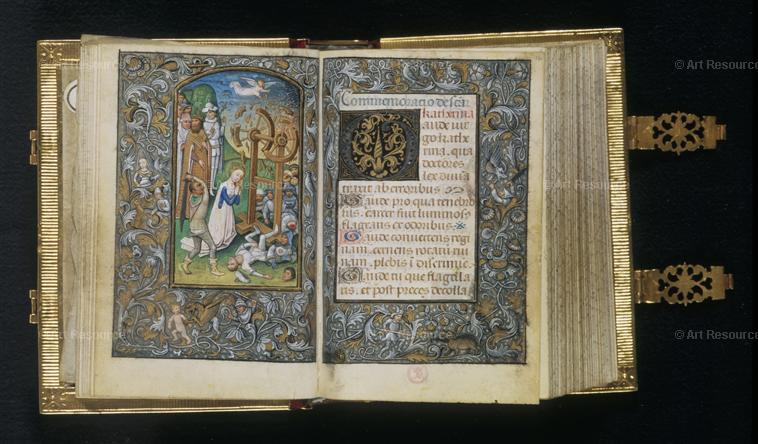 Commemoracio de sca
katherina
aude vir
go kathe
rina. qua
doctores
lex diuina
traxit ab erroribus
Gaude pro qua tenebro
sus. carcer fuit luminosus
flagrans et odoribus.
Gaude conuertens regi
nam. cernens rotam rui
nam. plebis in discrimine.
Gaude tu que flagella
ris. et post preces decolla
© Art Resource
© Art Resource
© Art Resource
© Art Resource